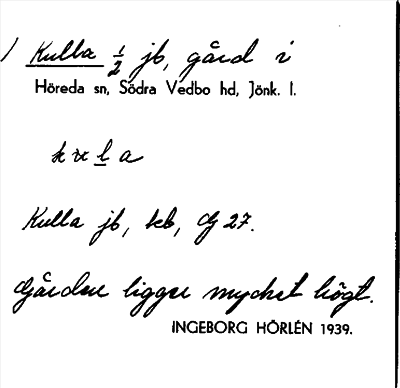 / Kulla ½ jb, gård i
Höreda sn, Södra Vedbo hd, Jönk. l.
Kulla jb, kb, GJ 27.
Gården ligger mycket högt.
INGEBORG HÖRLÉN 1939.